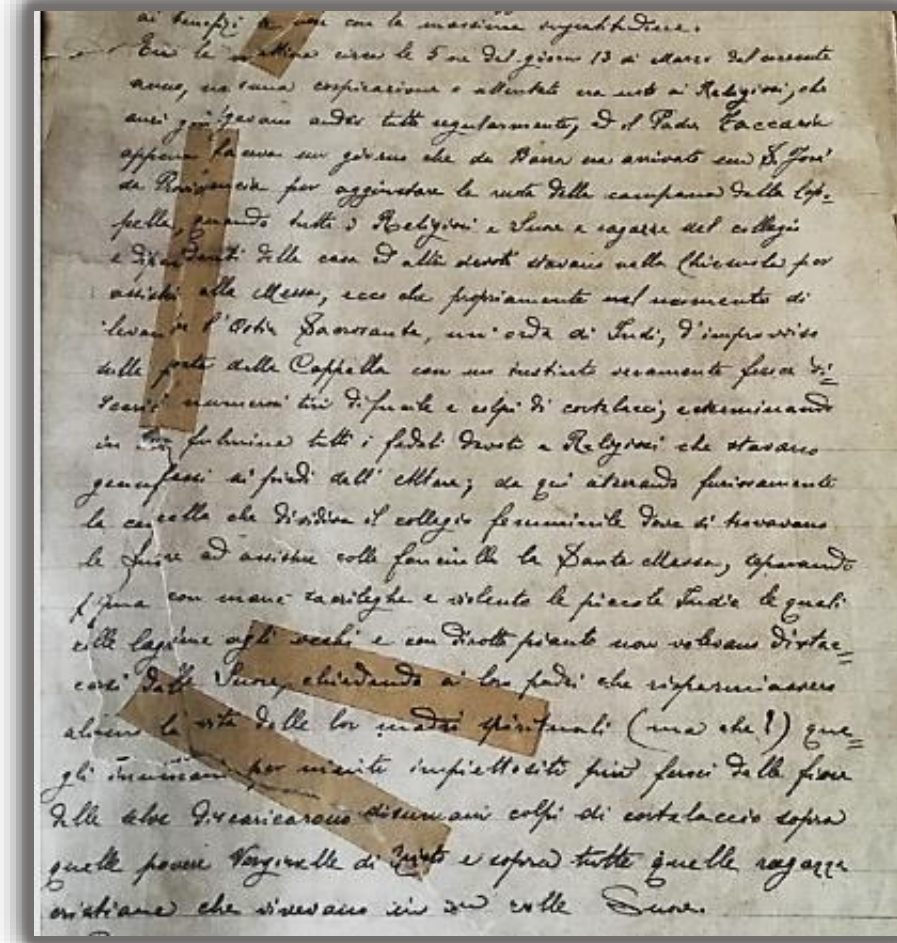 ai benefizi a con la massima ingratitudine.
Era la mattina circa le 5 ore del giorno 13 di Marzo del corrente
anno, nessuna cospirazione o attentato era noto ai Religiosi, che
anzi andar tutto regolarmente, ed il Padre Zaccaria
appena faceva un giorno che da Barra era arrivato em S. José
da Providencia per aggiustare la ruota della campana della Cap=
pella, quando tutti i Religiosi e Suore e ragazze del collegio
e dipendenti della casa ed altri devoti stavano nella Chiesuola per
assistere alla Messa, ecco che propriamente nel momento di
levarsi l'Ostia Sacrosanta, un'orda di Indi, d'improvviso
dalla porta della Cappella con un instinto veramente feroce di=
scaricò numerosi tiri di fucile e colpi di cortelacci, esterminando
in fulmine tutti i fedeli devoti e Religiosi che stavano
genuflessi ai piedi dell'Altare; da qui aterrando furiosamente
la cancella che dividiva il collegio femminile dove si trovavano
le Suore ad assistere colle fanciulle la Santa Messa, separando
prima con mano sacrileghe e violento le piccole Indie le quali
colle lagrime agli occhi e con dirotto pianto non volevano distac=
carsi dalle Suore, chiedendo ai loro padri che risparmiassero
almeno la vita delle lor madri spirituali (ma che!) que=
gli inumani per niente impiettositi più feroci delle fiere
delle selve discaricarono disumani colpi di cortelaccio sopra
quelle povere Verginelle di Cristo e sopra tutte quelle ragazze
cristiane che vivevano in colle Suore.